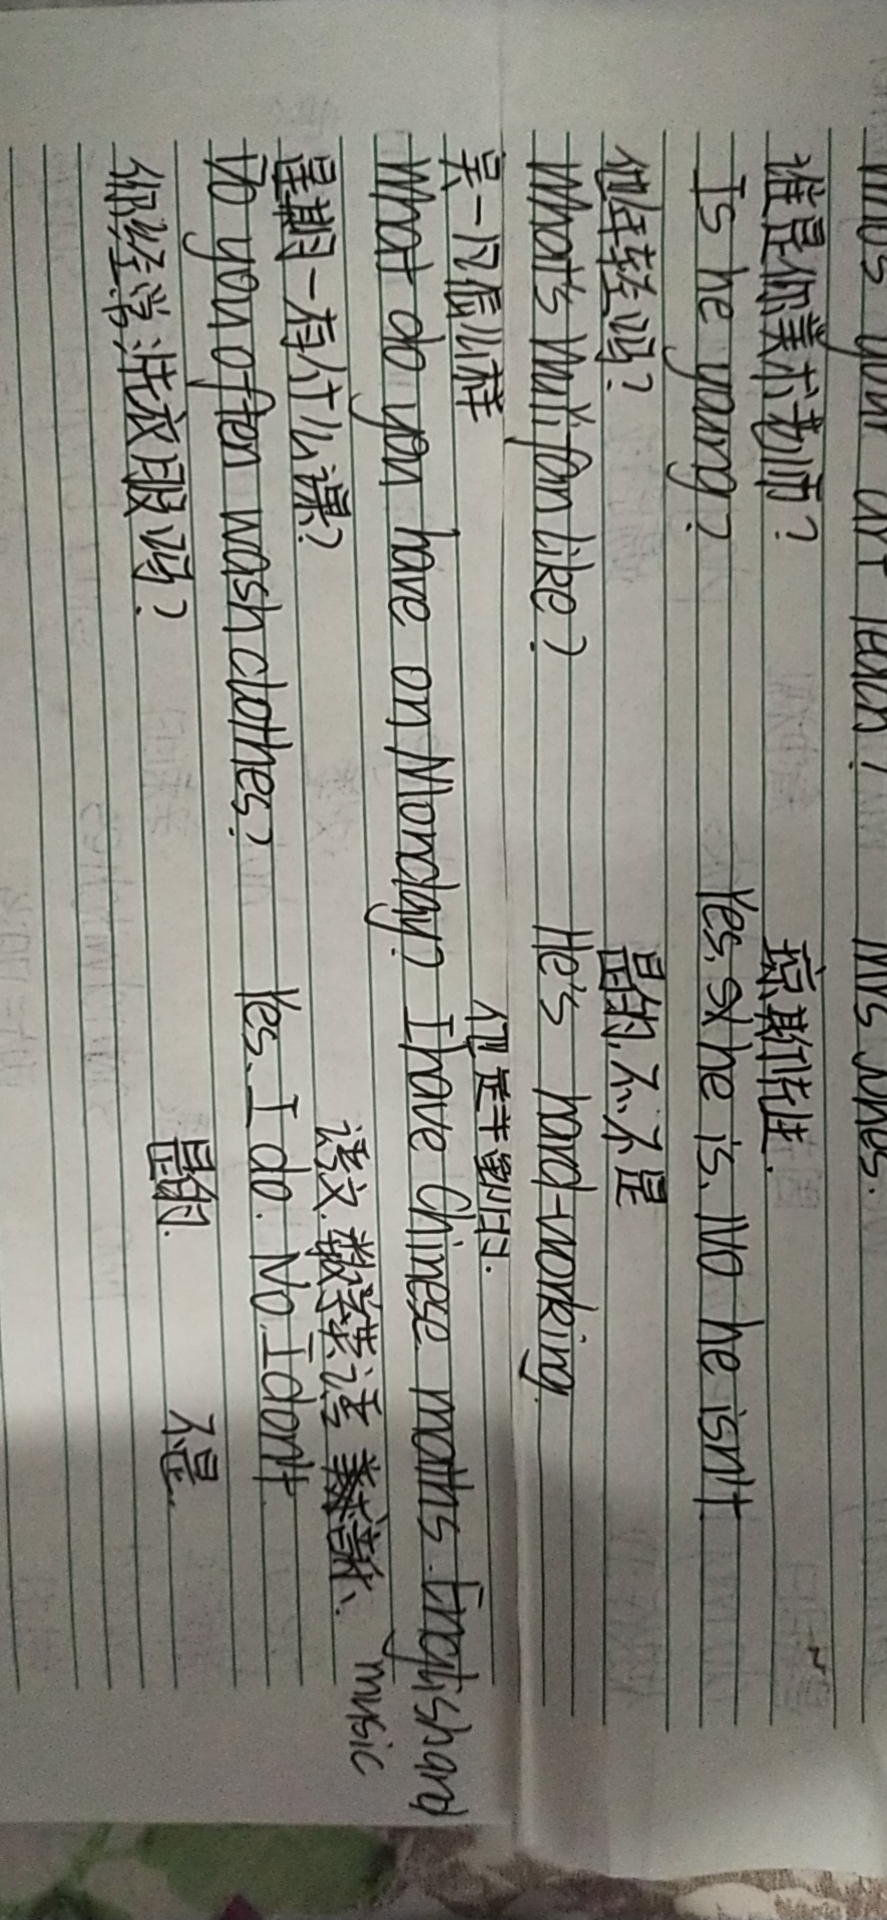 your art teach? Mrs Jones.
谁是你美术老师? 琼斯先生.
Is he young? Yes, she is. No he isn't
他年轻吗? 是的,不,不是
What's Wu Yifan like? He's hard-working.
吴一凡怎么样 他是辛勤工.
What do you have on Monday? I have Chinese. maths. English and music
星期一有什么课? 语文.数学英语
Do you often wash clothes? Yes. I do. No. I don't.
你经常洗衣服吗? 是的. 不是.